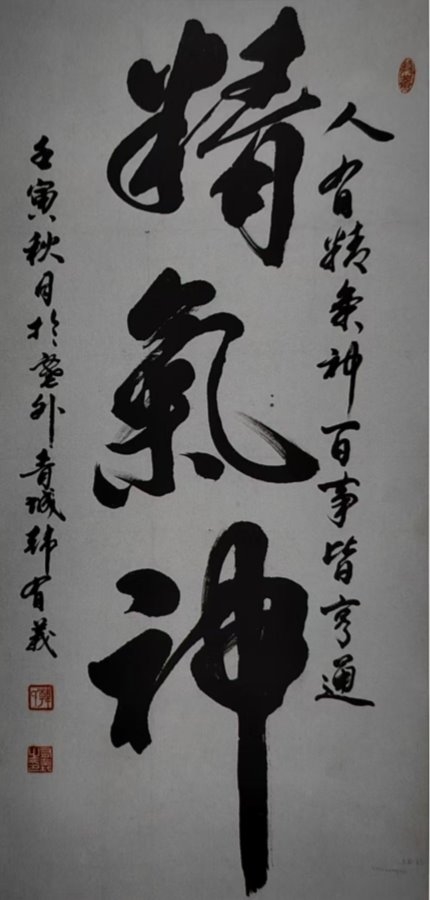 人有精氣神百事皆亨通
精氣神
壬寅秋月於塞外青城韩有義